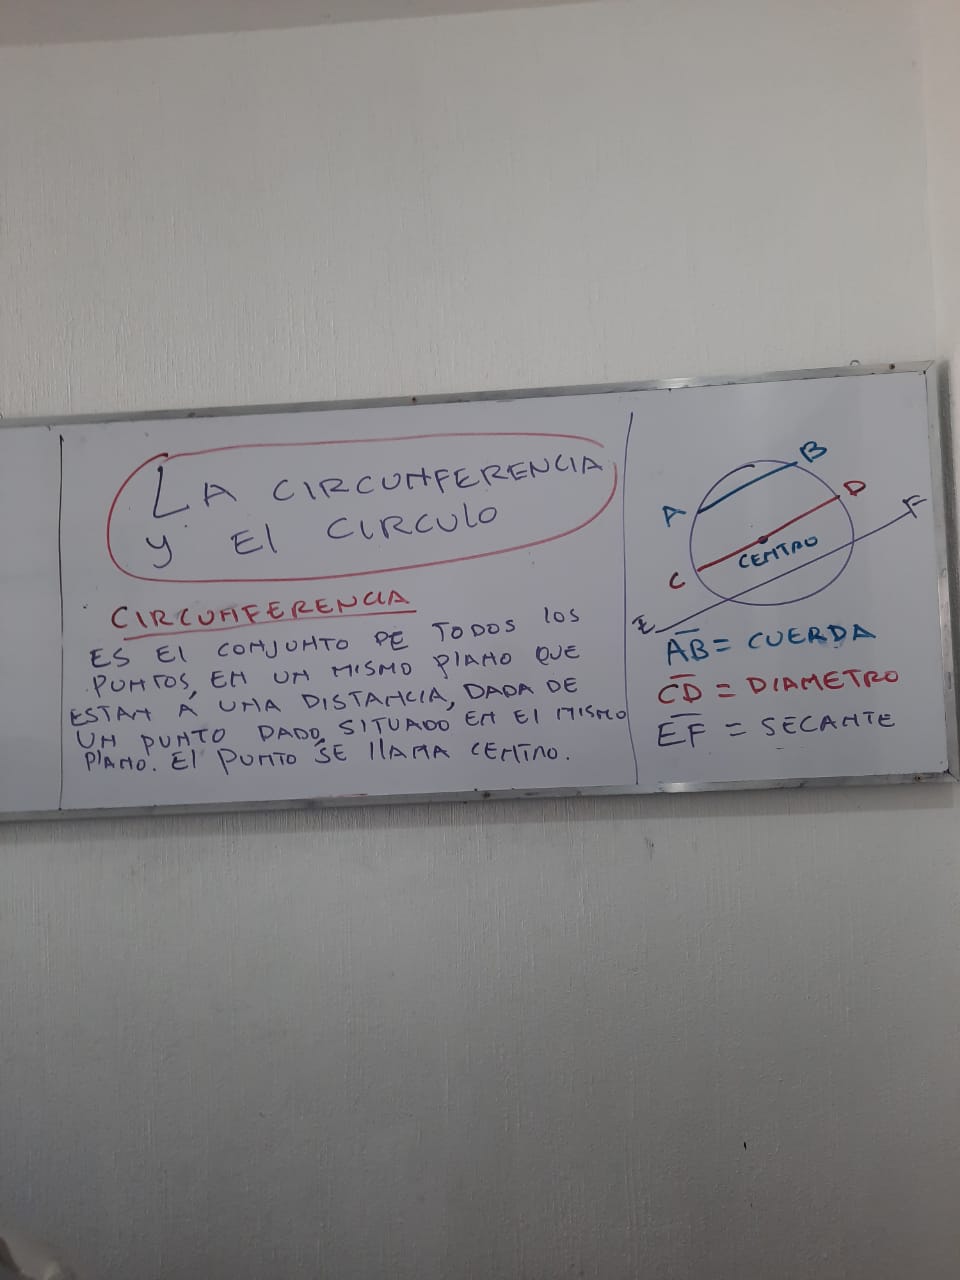 LA CIRCUNFERENCIA
y El CIRCULO
CIRCUNFERENCIA
ES El CONJUNTO DE TODOS lOS
PUNTOS, EN UN MISMO PlANO QUE
ESTAN A UNA DISTANCIA, DADA DE
UN PUNTO DADO, SITUADO EN El MISMO
PlANO. El PUNTO SE llAMA CENTRO.
B
A
D
F
CENTRO
C
E
AB = CUERDA
CD = DIAMETRO
EF = SECANTE